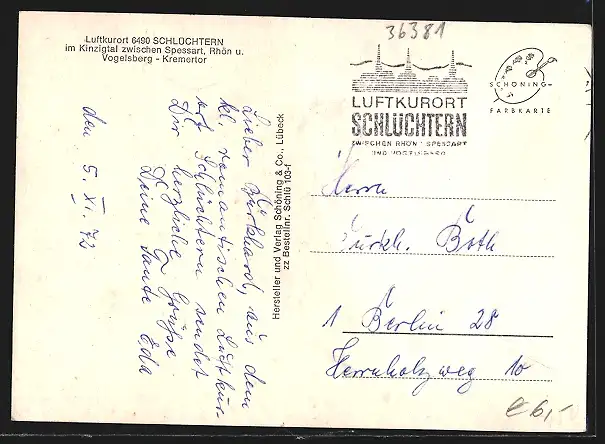 36381
Luftkurort 6490 SCHLÜCHTERN
im Kinzigtal zwischen Spessart, Rhön u.
Vogelsberg - Kremertor
LUFTKURORT
SCHLÜCHTERN
ZWISCHEN RHÖN SPESSART
UND VOGELSBERG
SCHÖNING-
FARBKARTE
den 5. XI. 72
Lieber Burkhard, aus dem
kl. romantischen Luftkur-
ort Schlüchtern sendet
Dir herzliche Grüße
Deine Tante Eda
Hersteller und Verlag Schöning & Co., Lübeck
zz Bestellnr. Schlü 103-f
Herrn
Burkh. Both
1 Berlin 28
Herrnholzweg 10
€ 6,-